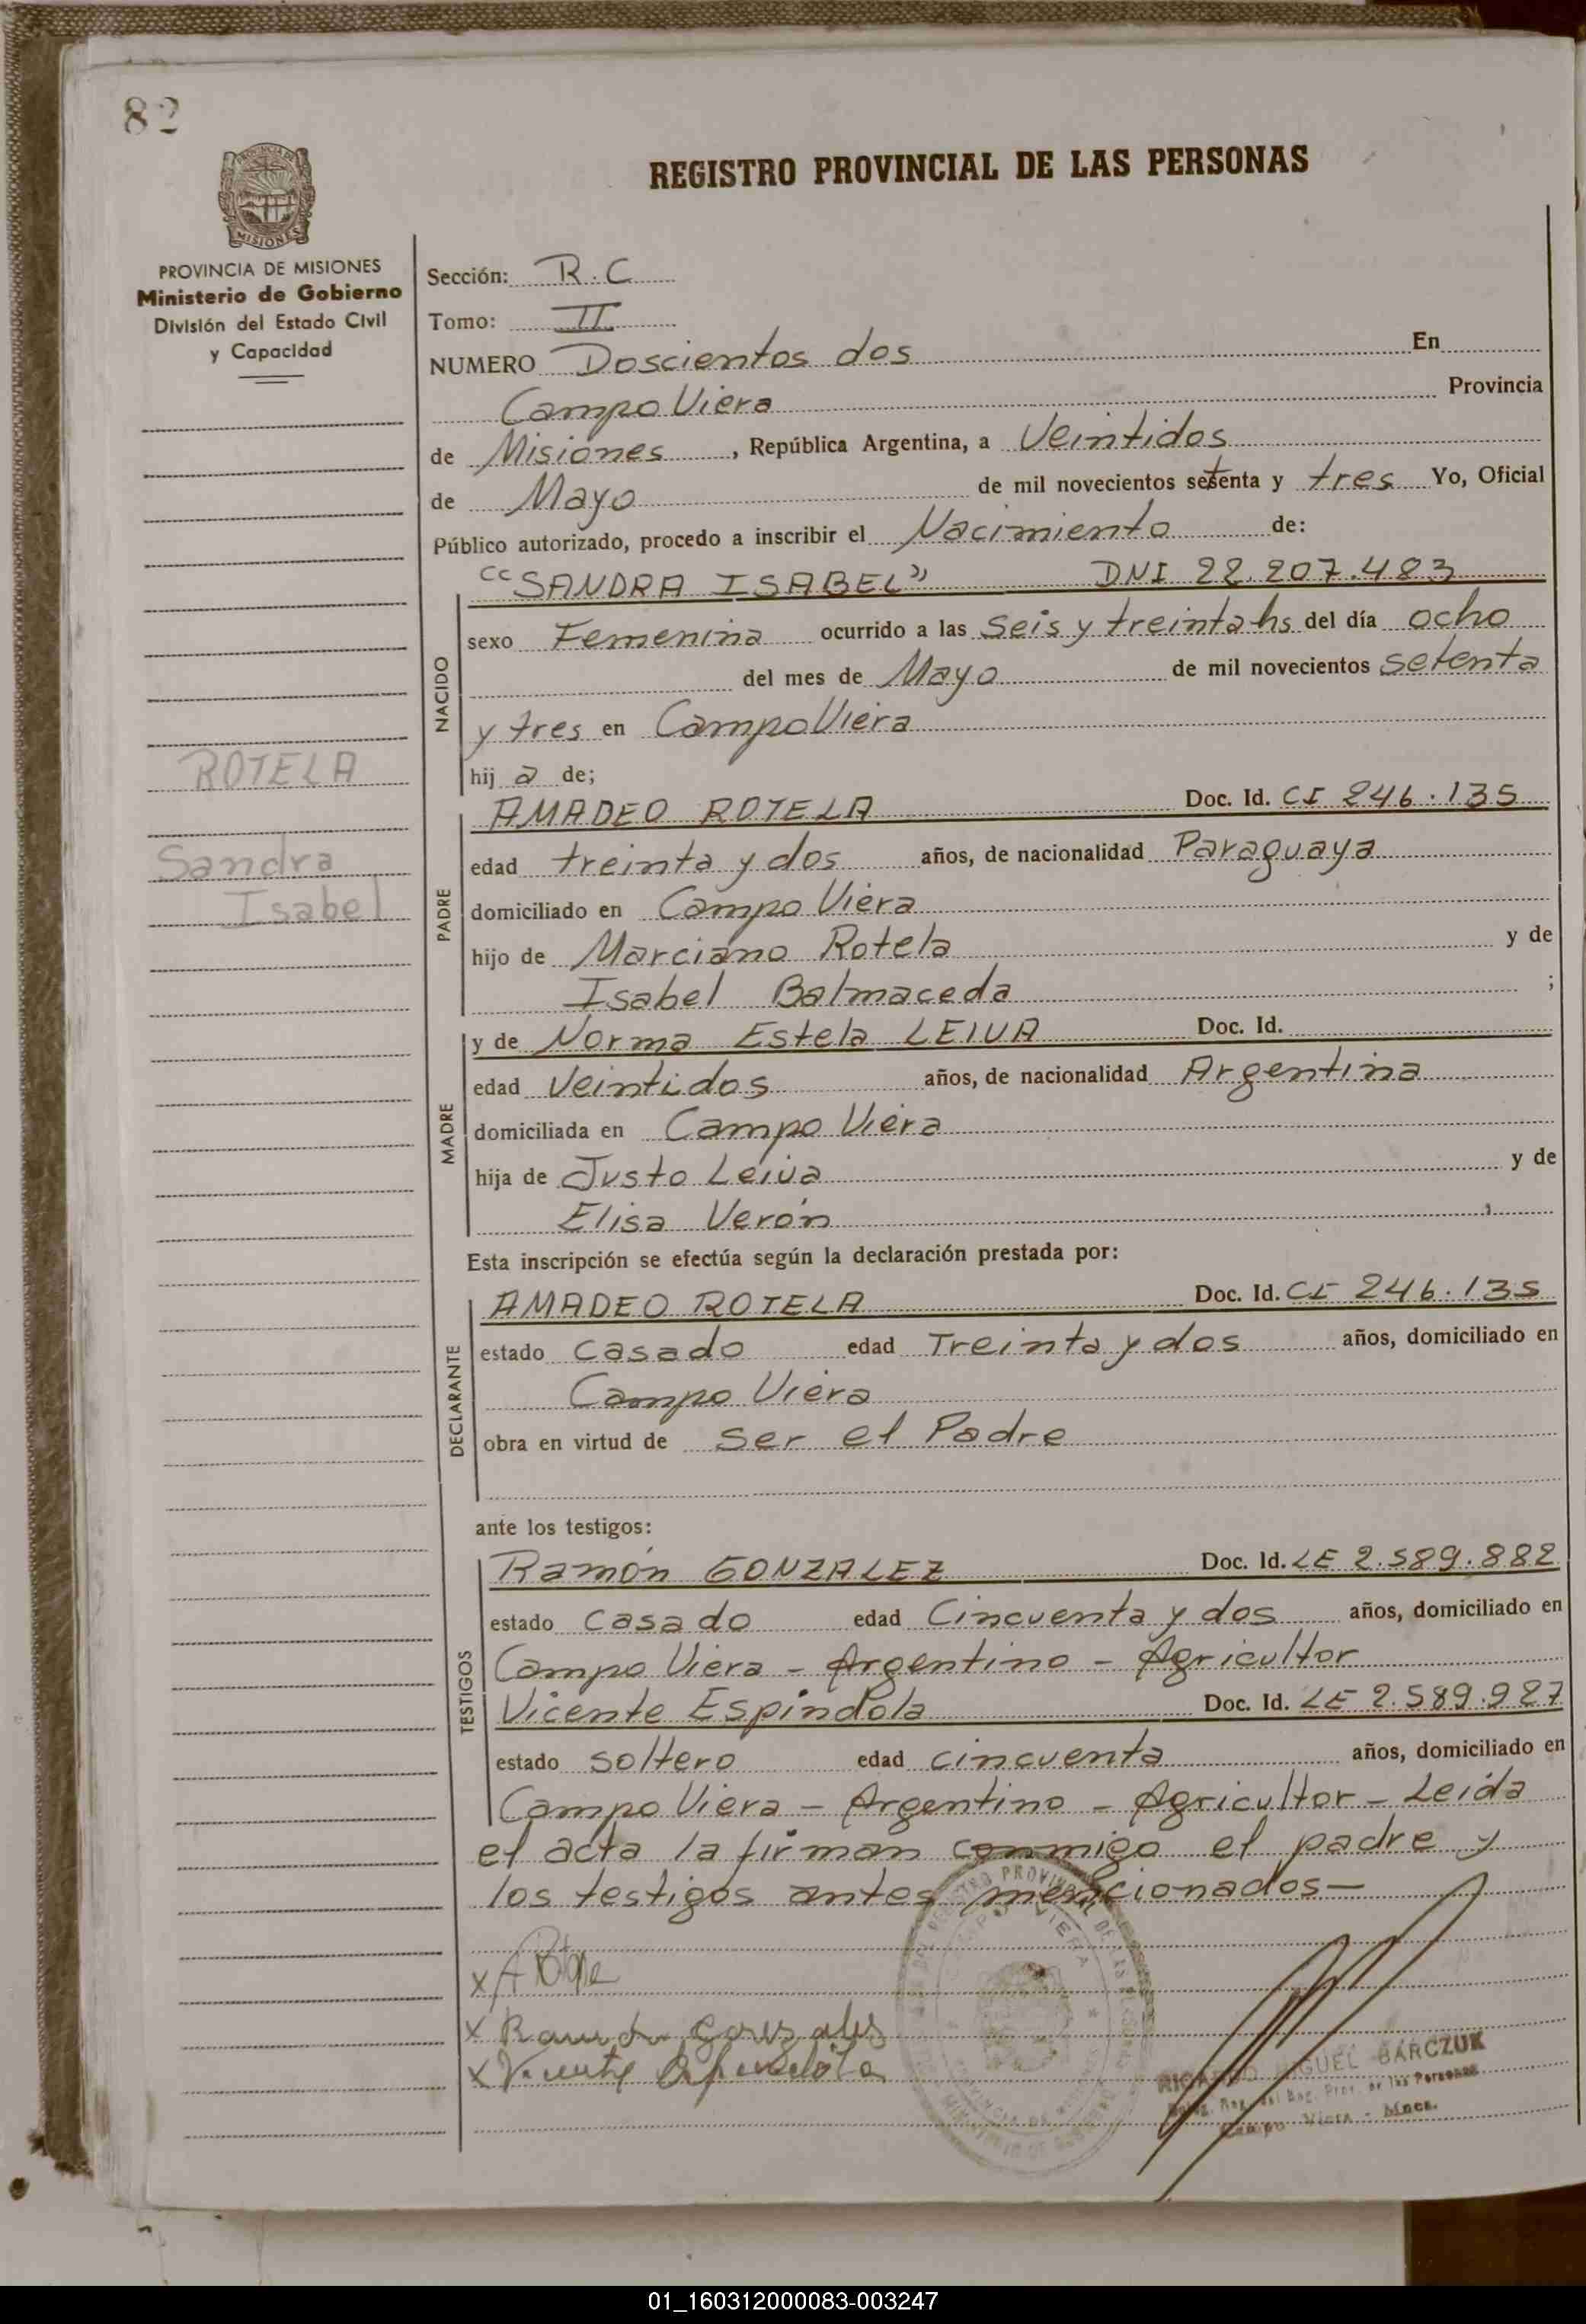 82
REGISTRO PROVINCIAL DE LAS PERSONAS
PROVINCIA DE
MISIONES
PROVINCIA DE MISIONES
Ministerio de Gobierno
División del Estado Civil
y Capacidad
ROTELA
Sandra
Isabel
Sección: R.C
Tomo: II
NUMERO Doscientos dos En
Campo Viera Provincia
de Misiones, República Argentina, a Veintidos
de Mayo de mil novecientos setenta y tres Yo, Oficial
Público autorizado, procedo a inscribir el Nacimiento de:
"SANDRA ISABEL" DNI 22.207.483
NACIDO
sexo Femenina ocurrido a las Seis y treinta hs del día ocho
del mes de Mayo de mil novecientos setenta
y tres en Campo Viera
hij a de;
PADRE
AMADEO ROTELA Doc. Id. CI 246.135
edad treinta y dos años, de nacionalidad Paraguaya
domiciliado en Campo Viera
hijo de Marciano Rotela y de
Isabel Balmaceda ;
MADRE
y de Norma Estela LEIVA Doc. Id.
edad Veintidos años, de nacionalidad Argentina
domiciliada en Campo Viera
hija de Justo Leiva y de
Elisa Verón
Esta inscripción se efectúa según la declaración prestada por:
DECLARANTE
AMADEO ROTELA Doc. Id. CI 246.135
estado casado edad Treinta y dos años, domiciliado en
Campo Viera
obra en virtud de ser el Padre
ante los testigos:
TESTIGOS
Ramón GONZALEZ Doc. Id. LE 2.589.882
estado casado edad Cincuenta y dos años, domiciliado en
Campo Viera - Argentino - Agricultor
Vicente Espíndola Doc. Id. LE 2.589.927
estado soltero edad cincuenta años, domiciliado en
Campo Viera - Argentino - Agricultor - Leída
el acta la firman conmigo el padre y
los testigos antes mencionados-
x
x
x Vicente
RICARDO MIGUEL BARCZUK
Campo Viera - Mnes.
01_160312000083-003247